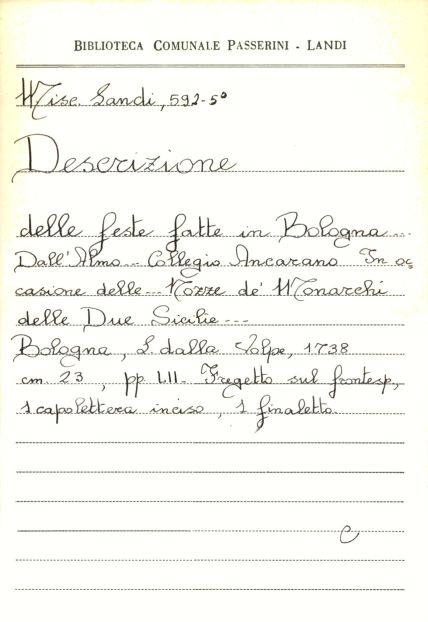 BIBLIOTECA COMUNALE PASSERINI - LANDI
Misc. Landi, 592-5°
Descrizione
delle feste fatte in Bologna...
Dall'Almo... Collegio Ancarano In oc
casione delle... Nozze de' Monarchi
delle Due Sicilie...
Bologna, L. dalla Volpe, 1738
cm. 23, pp. LII. Fregetto sul frontesp.,
1 capolettera inciso, 1 finaletto.
C